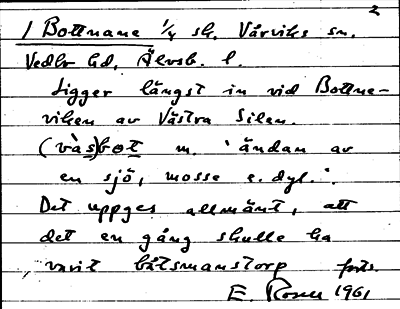 2
1 Bottnane 1/4 sk. Vårviks sn.
Vedbo hd, Älvsb. l.
Ligger längst in vid Bottne-
viken av Västra Silen.
(våsbot m. 'ändan av
en sjö, mosse e. dyl.'.
Det uppges allmänt, att
det en gång skulle ha
varit båtsmanstorp forts.
E. Rosen 1961